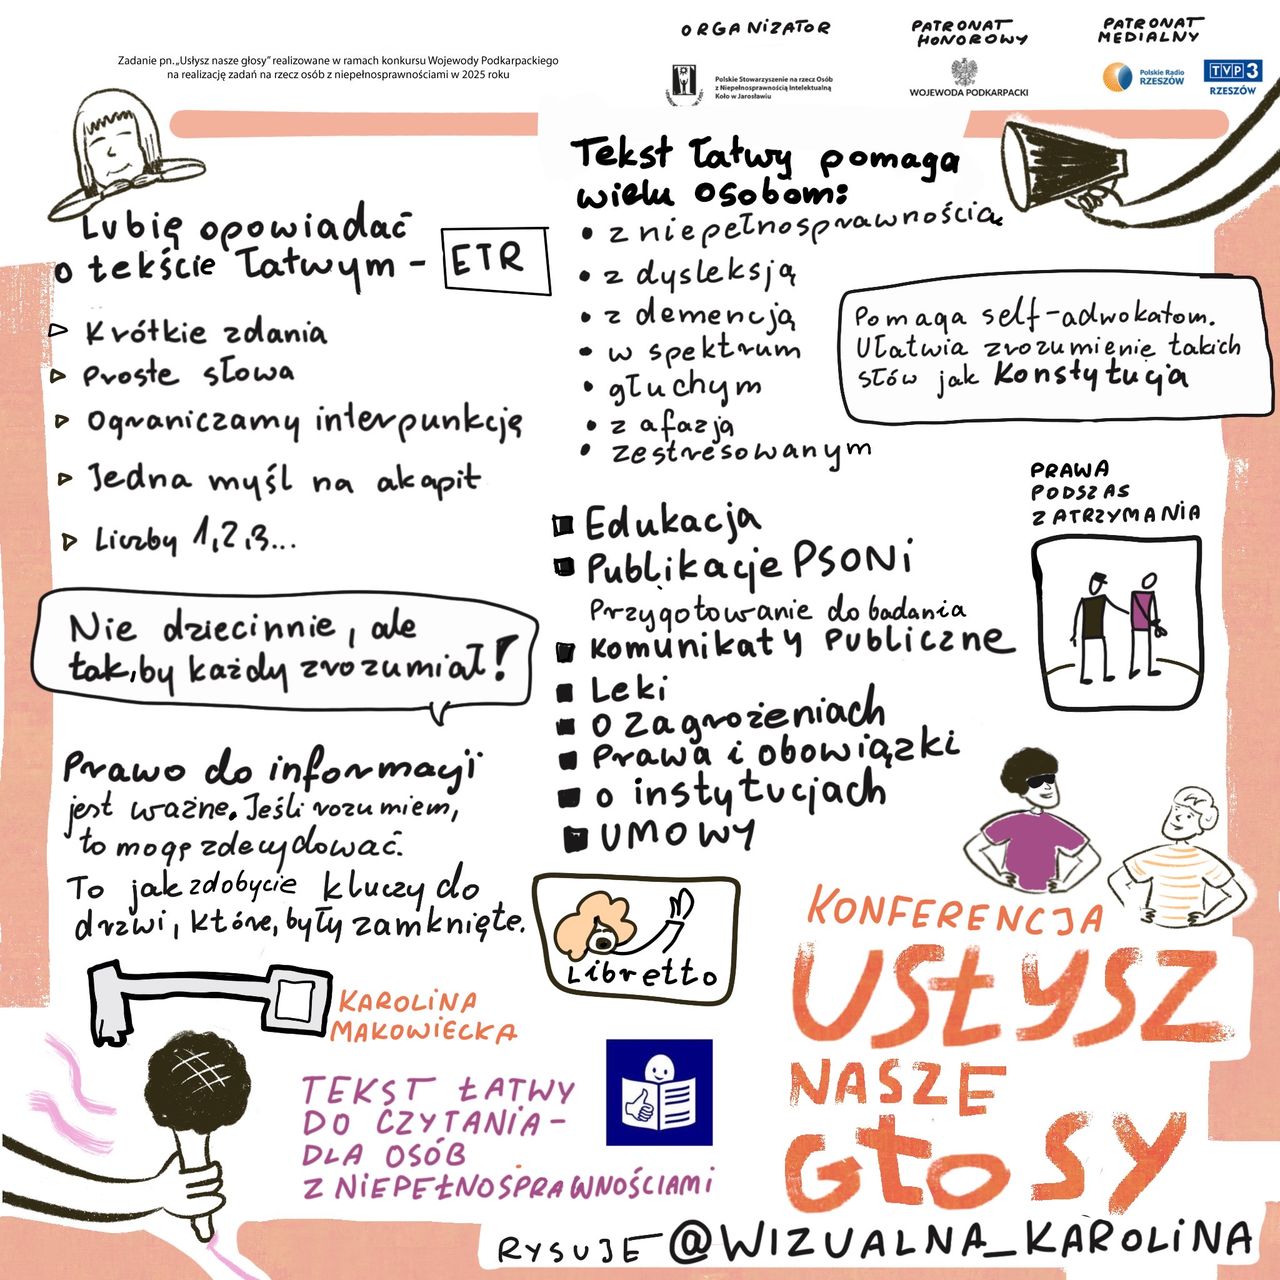 ORGANIZATOR
PATRONAT
HONOROWY
PATRONAT
MEDIALNY
Zadanie pn. „Usłysz nasze głosy” realizowane w ramach konkursu Wojewody Podkarpackiego
na realizację zadań na rzecz osób z niepełnosprawnościami w 2025 roku
Polskie Stowarzyszenie na rzecz Osób
z Niepełnosprawnością Intelektualną
Koło w Jarosławiu
WOJEWODA PODKARPACKI
Polskie Radio
RZESZÓW
TVP3
RZESZÓW
Lubię opowiadać
o tekście łatwym - ETR
Krótkie zdania
Proste słowa
Ograniczamy interpunkcję
Jedna myśl na akapit
Liczby 1,2,3...
Nie dziecinnie, ale
tak, by każdy zrozumiał!
Prawo do informacji
jest ważne. Jeśli rozumiem,
to mogę zdecydować.
To jak zdobycie kluczy do
drzwi, które, były zamknięte.
KAROLINA
MAKOWIECKA
TEKST ŁATWY
DO CZYTANIA -
DLA OSÓB
Z NIEPEŁNOSPRAWNOŚCIAMI
Tekst łatwy pomaga
wielu osobom:
• z niepełnosprawnością
• z dysleksją
• z demencją
• w spektrum
• głuchym
• z afazją
• zestresowanym
Edukacja
Publikacje PSONi
Przygotowanie do badania
Komunikaty publiczne
Leki
O zagrożeniach
Prawa i obowiązki
o instytucjach
UMOWY
Libretto
Pomaga self-adwokatom.
Ułatwia zrozumienie takich
słów jak Konstytucja
PRAWA
PODSZAS
ZATRZYMANIA
KONFERENCJA
USŁYSZ
NASZE
GŁOSY
RYSUJE @WIZUALNA_KAROLINA